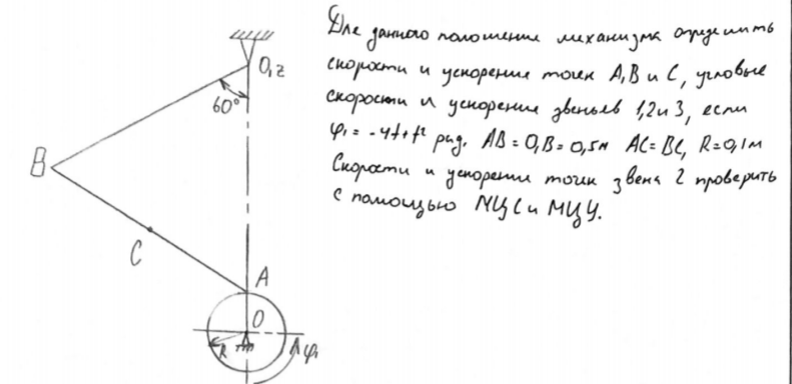 O,z
60°
B
C
A
O
R
φ₁
Для данного положения механизма определить
скорости и ускорение точек A, B и C, угловые
скорости и ускорение звеньев 1,2 и 3, если
φ₁ = -4t+t² рад. AB = O₁B = 0,5м AC = BC, R = 0,1м
Скорости и ускорение точек звена 2 проверить
с помощью МЦС и МЦУ.